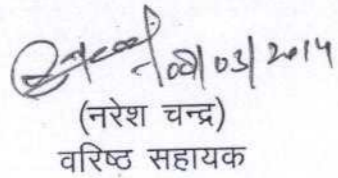 03/2014
(नरेश चन्द्र)
वरिष्ठ सहायक